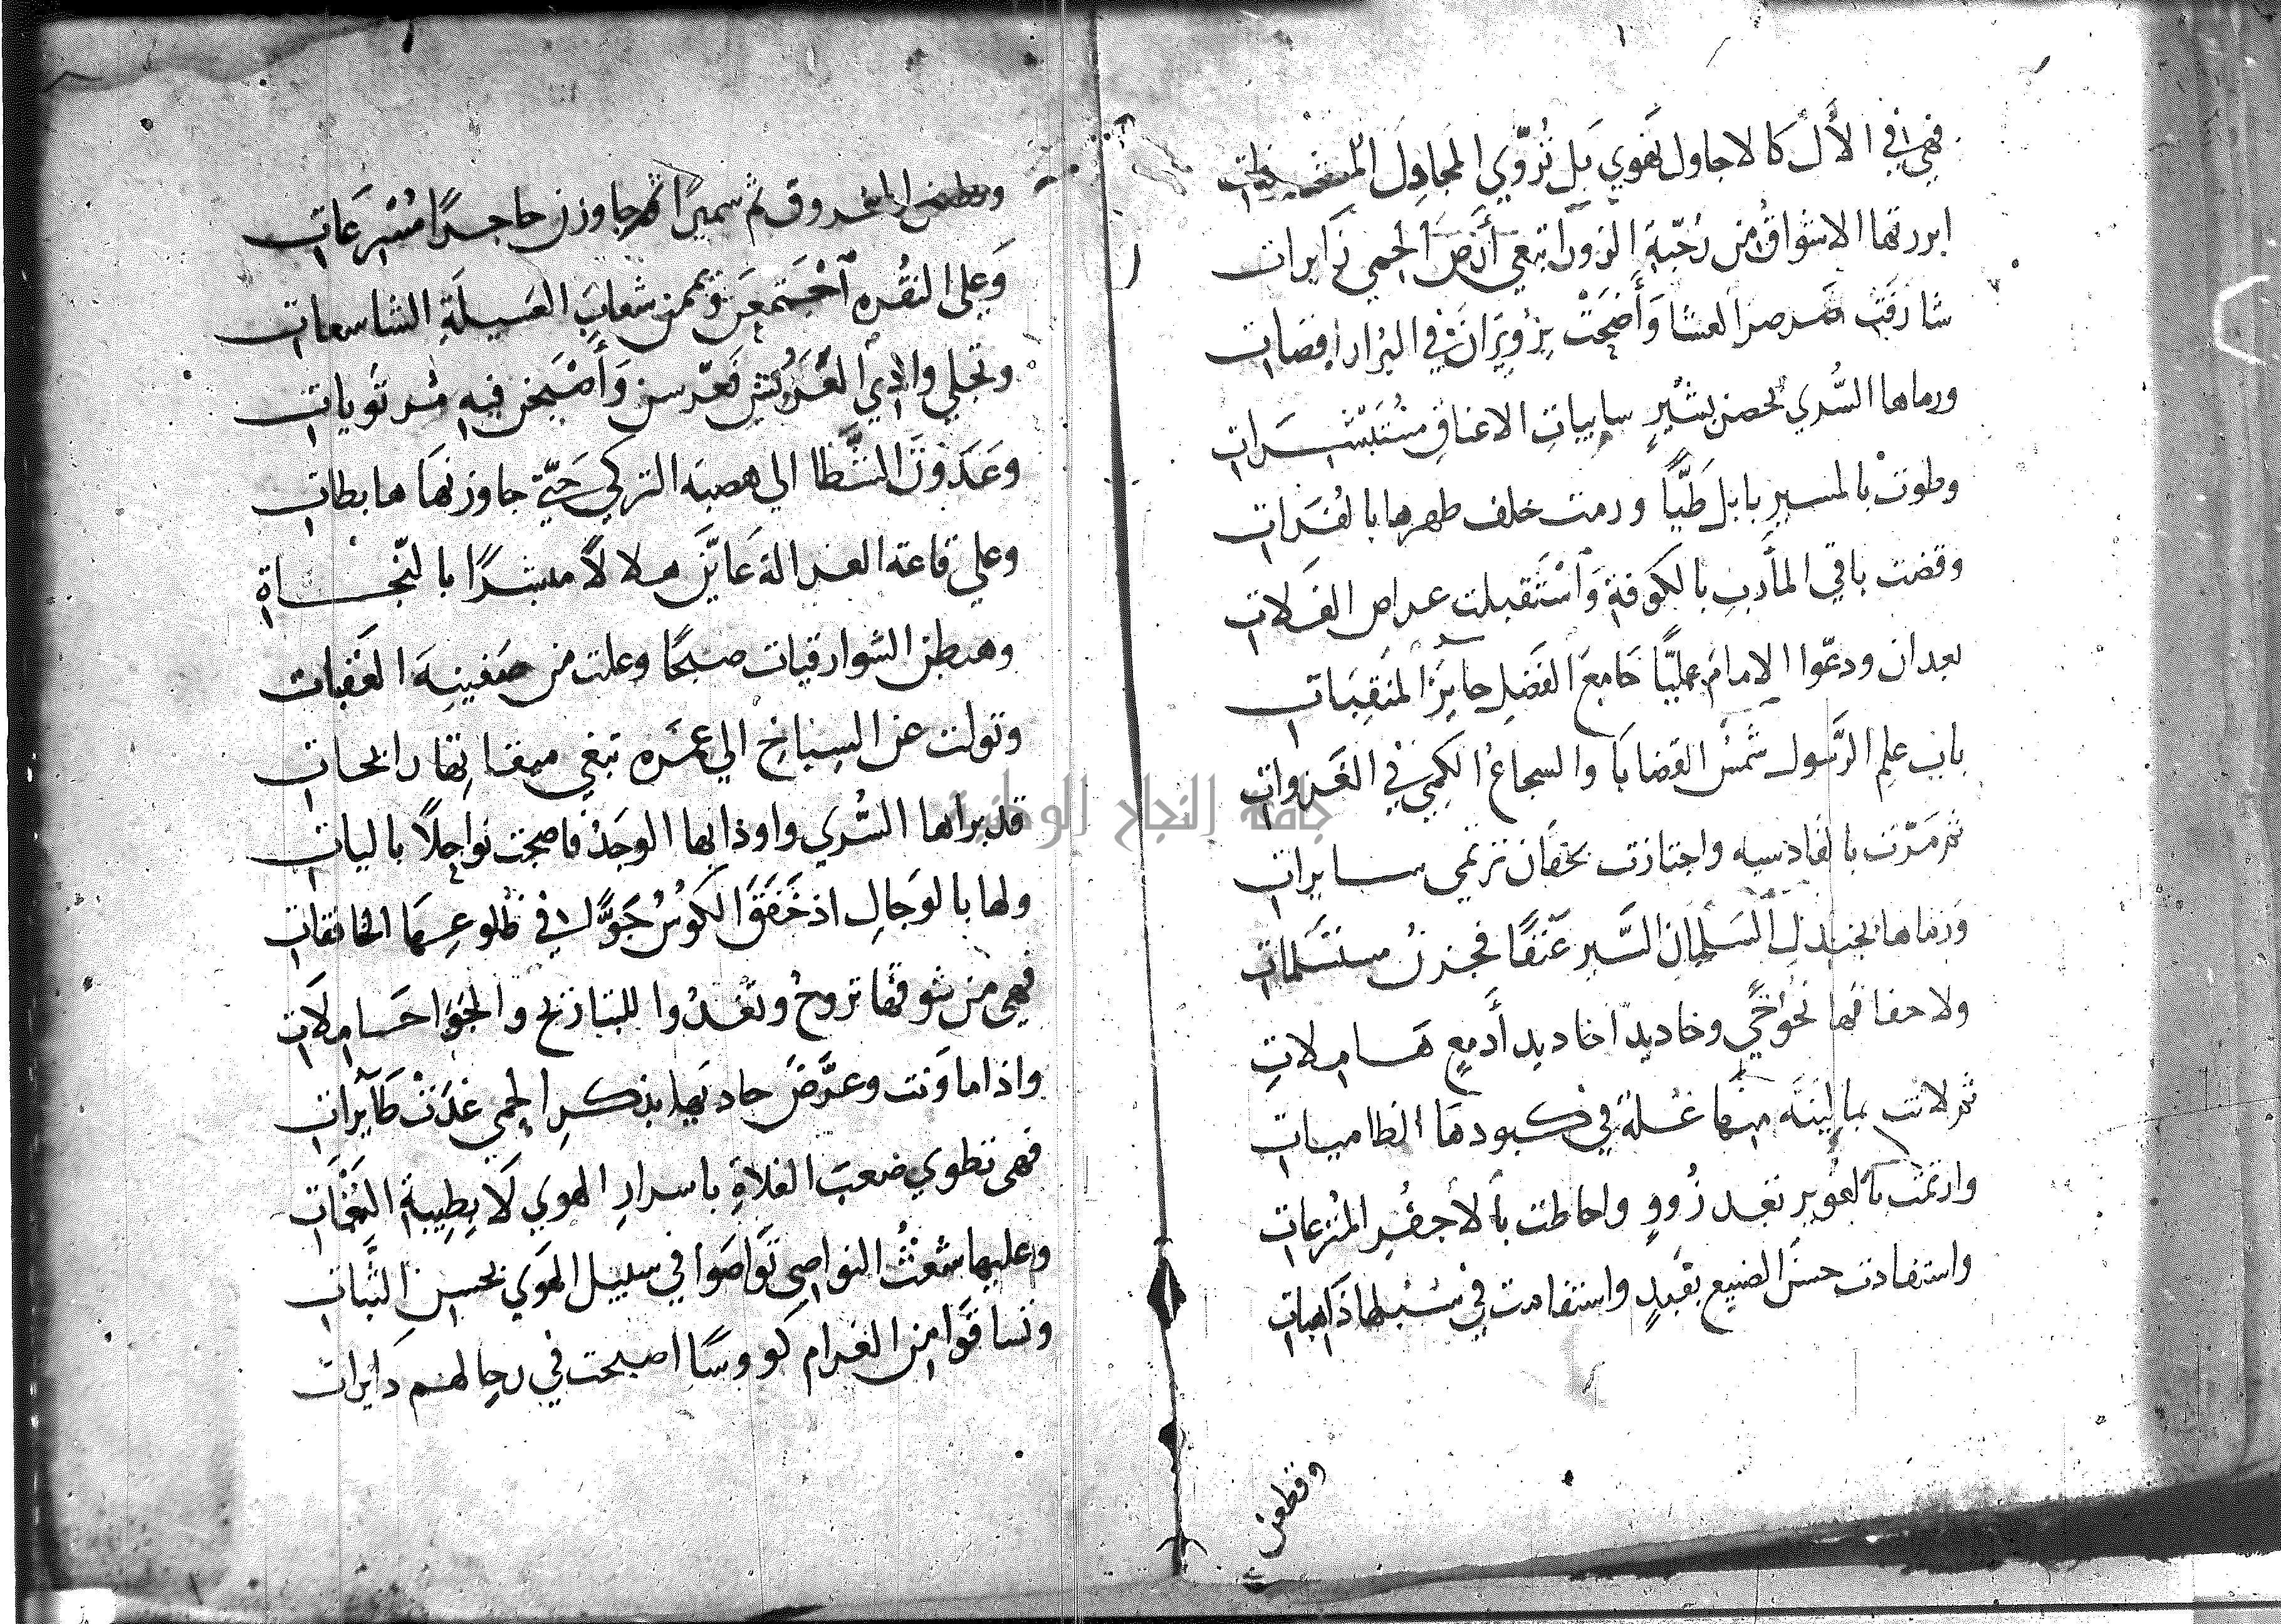 فهي في الأل كالاجاول تهوي بل تروّي المجادل
ابرزتها الاشواق من رحبة الزورا تبغي أرض الحمي زايرات
شارفت صرصر العشا وأضحت بزويران في البرارافضات
ورماها السُّري بحصن بشير ساميات الاعناق مستبشرات
وطوت بالمسير بابل طيًّا ورمت خلف ظهرها بالفرات
وقضت باقي المأدب بالكوفة وٱستقبلت عراص الفلات
بعد ان ودعّوا الامام عليًّا جامع الفضل حايز المنقبات
باب علم الرسول شمس القضايا والسجاع الكمي في الغزوات
ثم مرّت بالقادسيه واجتازت بخفان ترتمي سايرات
ورماها بخندل السلمان السير عنفًا فجزن مستسلمات
ولاحفافها نحو خي وخاديد اخاديد أدمع هاملات
ثم لاثت بمالينَه منها غلة في كبودها الظاميات
وارتمت بالعوير بعد زُوِو واحاطت بالأجفر المترعات
واستفادت حسن الضيع بقيد واستقامت في سبلها ذاهبات
وقطعن
وقطعن المخروق ثم سميرًا ثم جاوزن حاجرًا مسرعات
وعلي النقره ٱجتمعن ويممن شعاب العسيلة الشاسعات
وتجلي وادي العريش فعرّسن وأصبحن فيه مرتويات
وعدون الشظا الي هصبه التركي حتي جاوزنها هابطات
وعلي قاعة الغزالة عاينّ هلالاً مبشرًا بالنجاة
وهبطن الشوارقيات صبحًا وعلت من صفينه العقبات
وتولت عن السباخ الي عمره تبغي ميقاتها رابحات
قد براها السُّري واوذابها الوجد فاصبحت نواحلاً باليات
ولها بالوجال اذ خفق الكوس جوًّا في ظلوعها الخافقات
فهي من شوقها تروح وتغدوا للتبازيح والجوا حاملات
واذا ما ونت وعرّض حاديها بذكر الحمي غدت طآيرات
فهي تطوي صعب الفلاة باسرار الهوي لا بطيبة النغمات
وعليها شعث النواصي تواصوا في سبيل الهوي بحسن الثبات
وتساقوا من الغرام كووسًا اصبحت في رحالهم دايرات
جامعة النجاح الوطنية